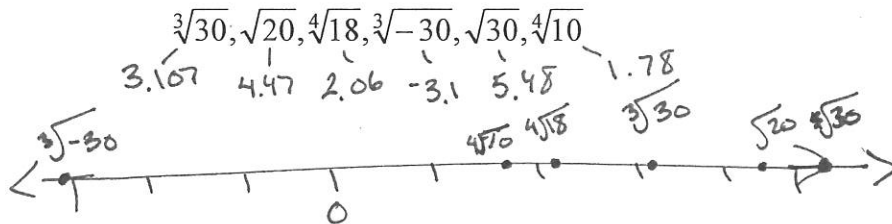 ∛30, √20, ∜18, ∛-30, √30, ∜10
3.107 4.47 2.06 -3.1 5.48 1.78
∛-30 ∜10 ∜18 ∛30 √20 √30
0